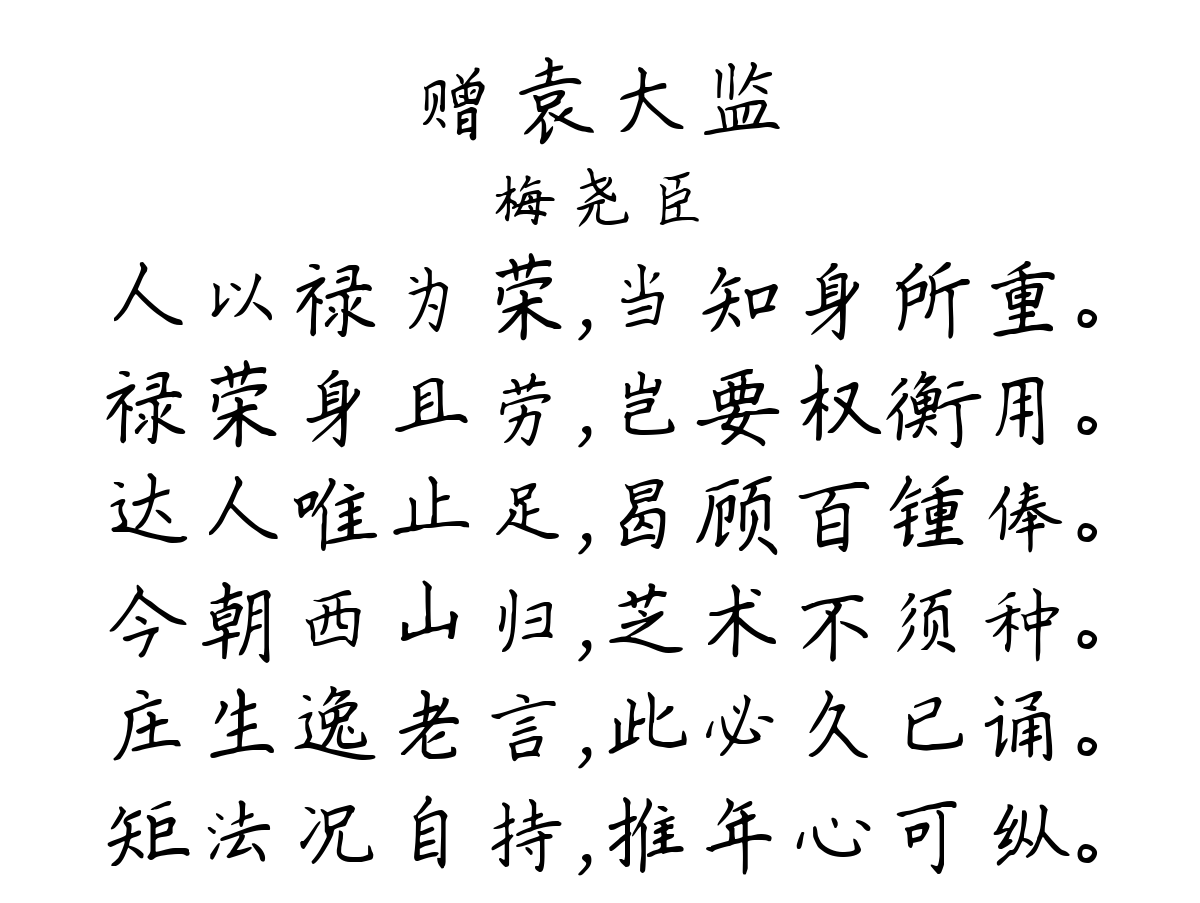 赠袁大监
梅尧臣
人以禄为荣,当知身所重。
禄荣身且劳,岂要权衡用。
达人唯止足,曷顾百锺俸。
今朝西山归,芝术不须种。
庄生逸老言,此必久已诵。
矩法况自持,推年心可纵。